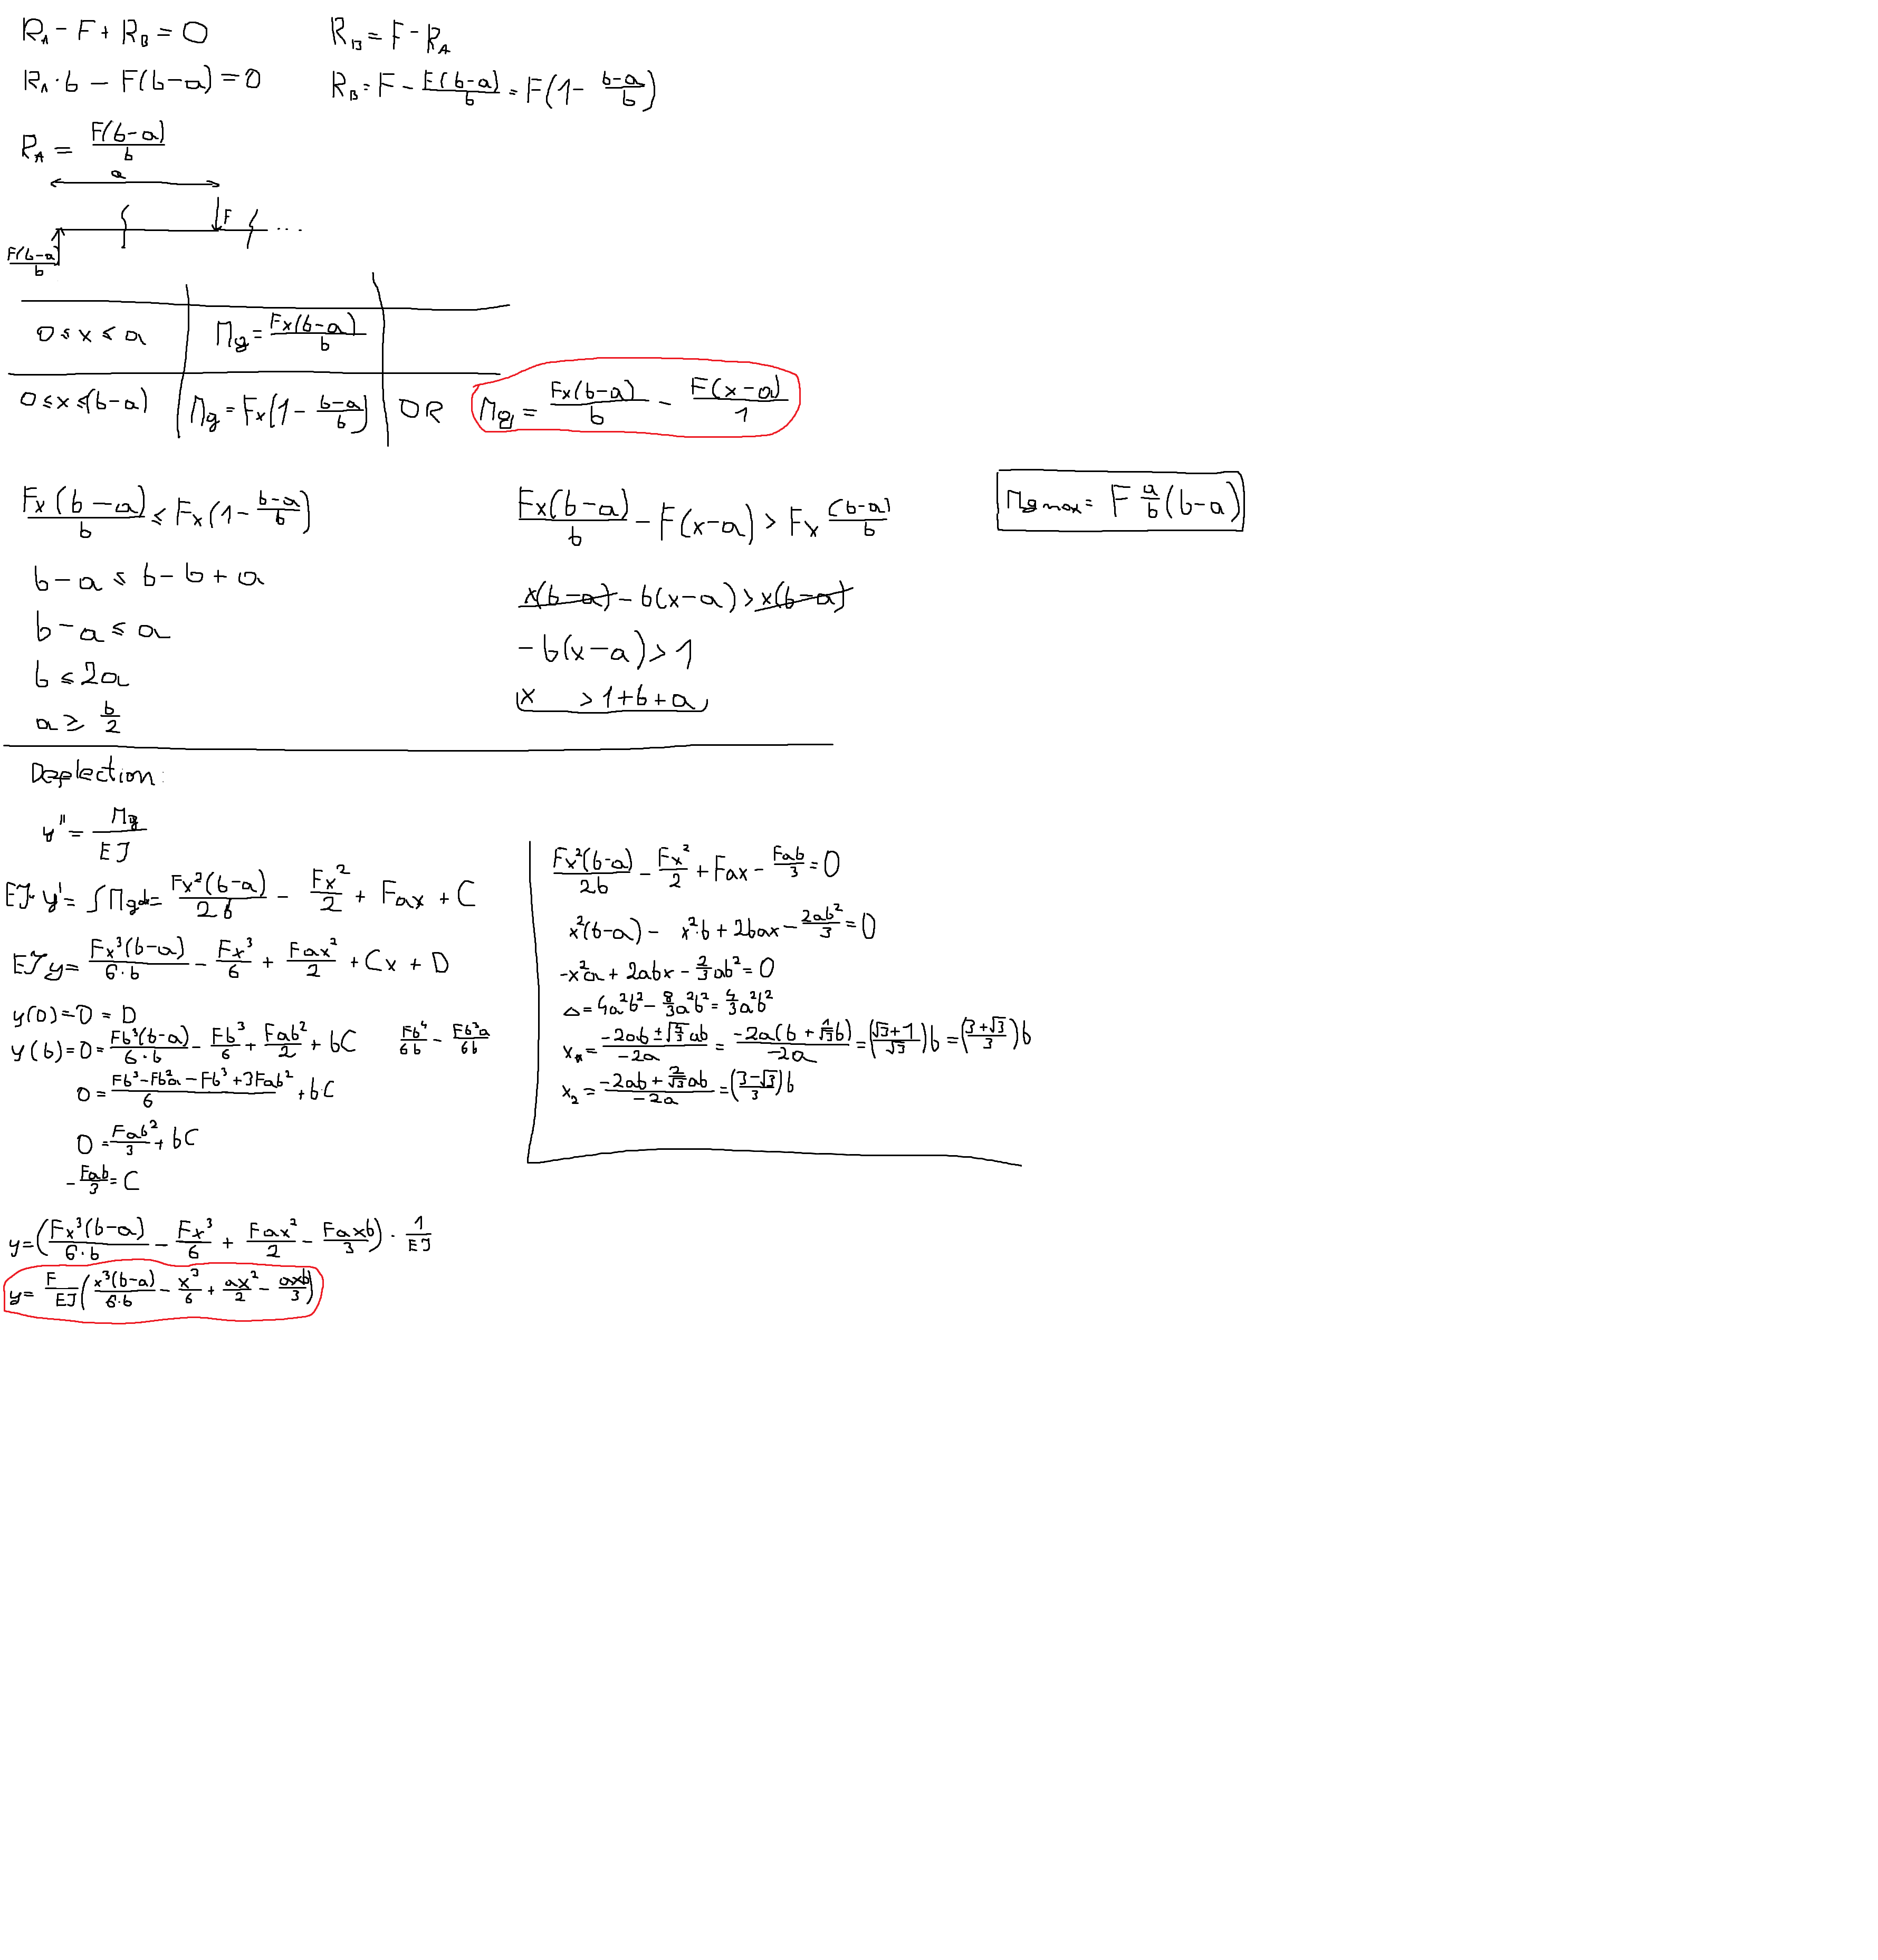 R_A - F + R_B = 0
R_B = F - R_A
R_A · b - F(b-a) = 0
R_B = F - F(b-a)/b = F(1 - (b-a)/b)
R_A = F(b-a)/b
a
F
...
F(b-a)/b
0 ≤ x ≤ a
Mg = Fx(b-a)/b
0 ≤ x ≤ (b-a)
Mg = Fx(1 - (b-a)/b)
OR
Mg = Fx(b-a)/b - F(x-a)/1
Fx(b-a)/b ≤ Fx(1 - (b-a)/b)
b-a ≤ b-b+a
b-a ≤ a
b ≤ 2a
a ≥ b/2
Fx(b-a)/b - F(x-a) > Fx (b-a)/b
x(b-a) - b(x-a) > x(b-a)
-b(x-a) > 1
x > 1+b+a
Mg max = F a/b (b-a)
Deflection:
y'' = Mg/EJ
EJ·y' = ∫Mg dx = Fx²(b-a)/2b - Fx²/2 + Fax + C
EJy = Fx³(b-a)/6·b - Fx³/6 + Fax²/2 + Cx + D
y(0) = 0 = D
y(b) = 0 = Fb³(b-a)/6·b - Fb³/6 + Fab²/2 + bC
Fb⁴/6b - Fb³a/6b
0 = (Fb³ - Fb²a - Fb³ + 3Fab²)/6 + bC
0 = Fab²/3 + bC
-Fab/3 = C
y = (Fx³(b-a)/6·b - Fx³/6 + Fax²/2 - Faxb/3) · 1/EJ
y = F/EJ (x³(b-a)/6·b - x³/6 + ax²/2 - axb/3)
Fx²(b-a)/2b - Fx²/2 + Fax - Fab/3 = 0
x²(b-a) - x²·b + 2bax - 2ab²/3 = 0
-x²a + 2abx - 2/3 ab² = 0
Δ = 4a²b² - 8/3 a²b² = 4/3 a²b²
x₁ = (-2ab ± √(4/3) ab)/-2a = -2a(b + 1/√3 b)/-2a = ((√3+1)/√3)b = ((3+√3)/3)b
x₂ = (-2ab + 2/√3 ab)/-2a = ((3-√3)/3)b